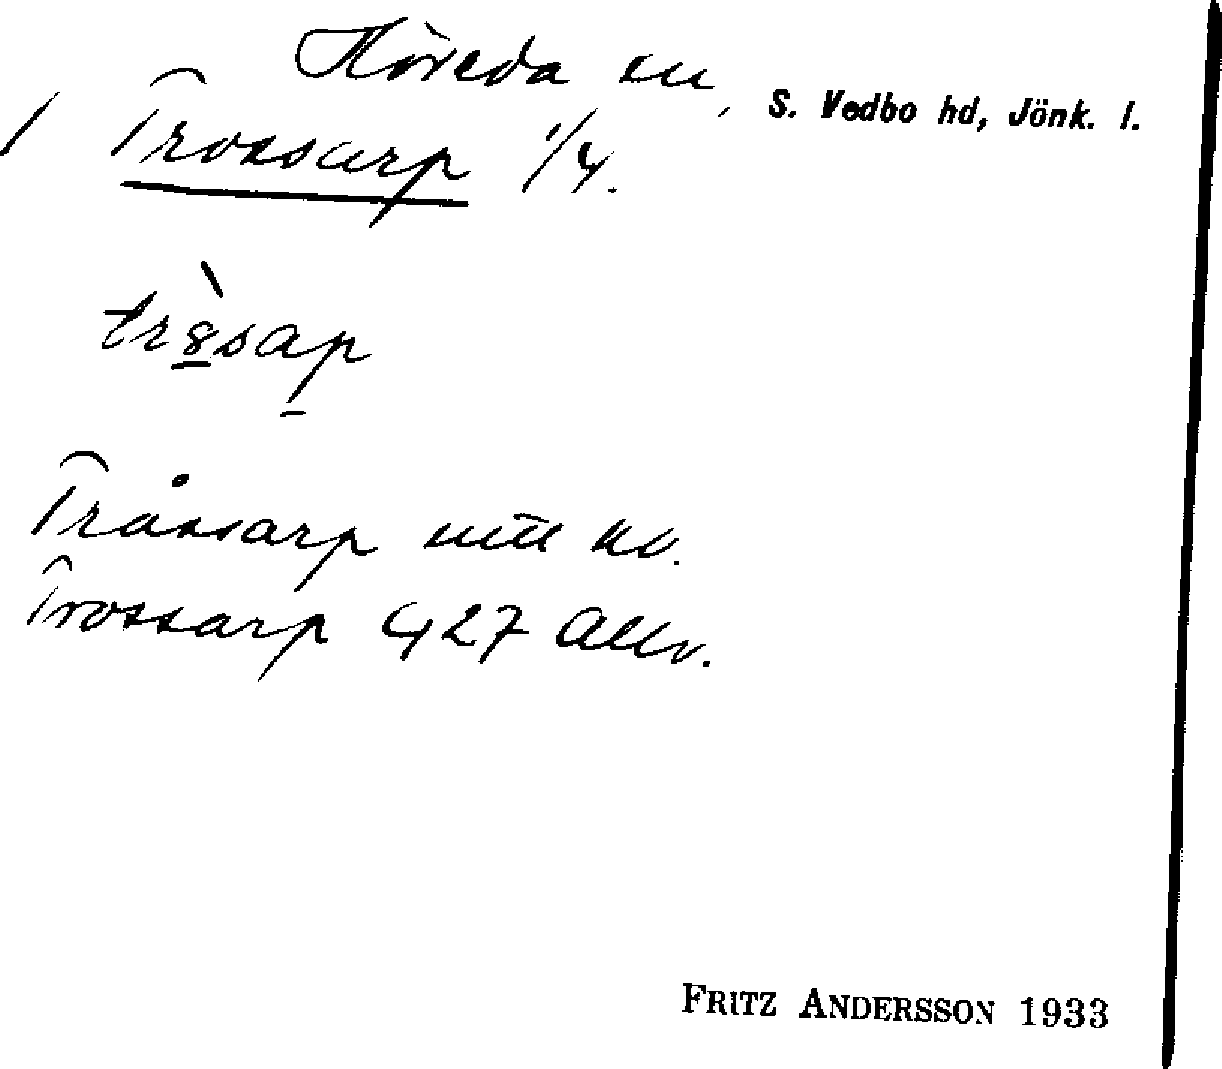 Höreda sn, S. Vedbo hd, Jönk. l.
/ Trossarp 1/4.
tr8̲̀sap̲
Tråssarp uttl kv.
Trossarp 427 Allv.
FRITZ ANDERSSON 1933